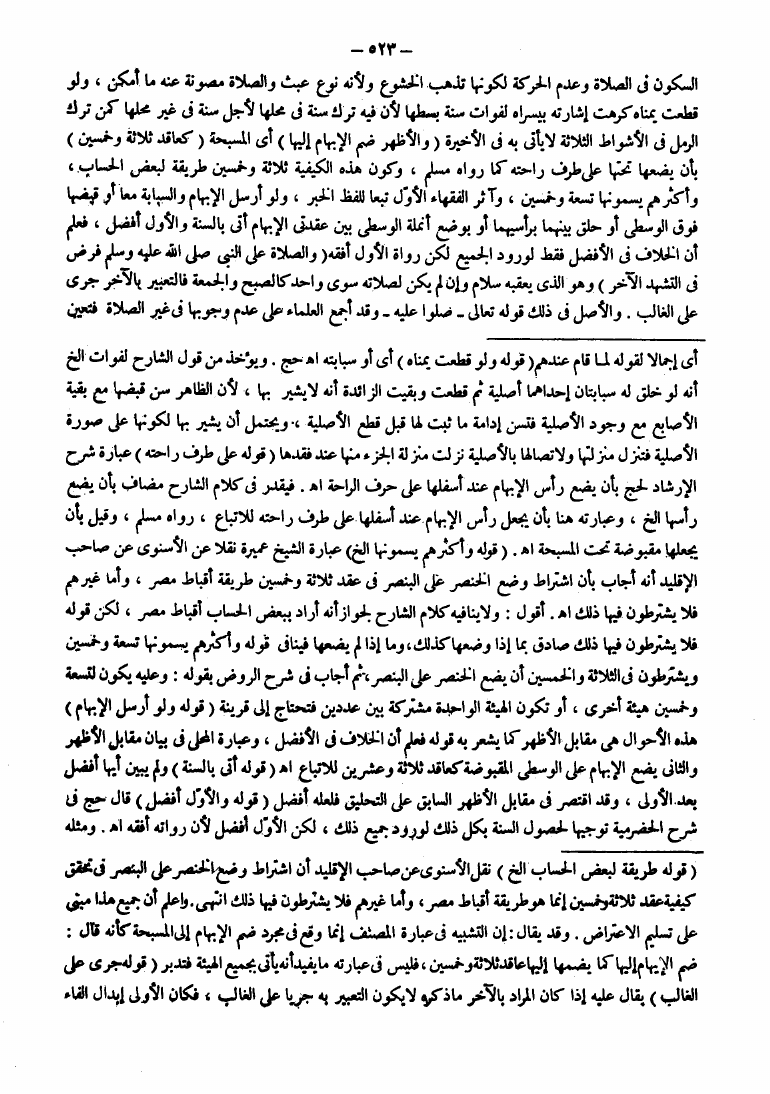 — ٥٢٣ —
السكون فى الصلاة وعدم الحركة لكونها تذهب الخشوع ولأنه نوع عبث والصلاة مصونة عنه ما أمكن ، ولو
قطعت يمناه كرهت إشارته بيسراه لفوات سنة بسطها لأن فيه ترك سنة فى محلها لأجل سنة فى غير محلها كمن ترك
الرمل فى الأشواط الثلاثة لايأتى به فى الأخيرة ( والأظهر ضم الإبهام إليها ) أى المسبحة ( كعاقد ثلاثة وخمسين )
بأن يضعها تحتها على طرف راحته كما رواه مسلم ، وكون هذه الكيفية ثلاثة وخمسين طريقة لبعض الحساب ،
وأكثرهم يسمونها تسعة وخمسين ، وآثر الفقهاء الأوّل تبعا للفظ الخبر ، ولو أرسل الإبهام والسبابة معا أو قبضها
فوق الوسطى أو حلق بينهما برأسيهما أو بوضع أنملة الوسطى بين عقدتى الإبهام أتى بالسنة والأول أفضل ، فعلم
أن الخلاف فى الأفضل فقط لورود الجميع لكن رواة الأول أفقه ( والصلاة على النبى صلى الله عليه وسلم فرض
فى التشهد الآخر ) وهو الذى يعقبه سلام وإن لم يكن لصلاته سوى واحد كالصبح والجمعة فالتعبير بالآخر جرى
على الغالب . والأصل فى ذلك قوله تعالى ـ صلوا عليه ـ وقد أجمع العلماء على عدم وجوبها فى غير الصلاة فتعين
أى إجمالا لقوله لما قام عندهم ( قوله ولو قطعت يمناه ) أى أو سبابته اه حج . ويؤخذ من قول الشارح لفوات الخ
أنه لو خلق له سبابتان إحداهما أصلية ثم قطعت وبقيت الزائدة أنه لايشير بها ، لأن الظاهر سن قبضها مع بقية
الأصابع مع وجود الأصلية فتسن إدامة ما ثبت لها قبل قطع الأصلية ، ويحتمل أن يشير بها لكونها على صورة
الأصلية فتنزل منزلتها ولاتصالها بالأصلية نزلت منزلة الجزء منها عند فقدها ( قوله على طرف راحته ) عبارة شرح
الإرشاد لحج بأن يضع رأس الإبهام عند أسفلها على حرف الراحة اه . فيقدر فى كلام الشارح مضاف بأن يضع
رأسها الخ ، وعبارته هنا بأن يجعل رأس الإبهام عند أسفلها على طرف راحته للاتباع ، رواه مسلم ، وقيل بأن
يجعلها مقبوضة تحت المسبحة اه . ( قوله وأكثرهم يسمونها الخ ) عبارة الشيخ عميرة نقلا عن الأسنوى عن صاحب
الإقليد أنه أجاب بأن اشتراط وضع الخنصر على البنصر فى عقد ثلاثة وخمسين طريقة أقباط مصر ، وأما غيرهم
فلا يشترطون فيها ذلك اه . أقول : ولاينافيه كلام الشارح لجواز أنه أراد ببعض الحساب أقباط مصر ، لكن قوله
فلا يشترطون فيها ذلك صادق بما إذا وضعها كذلك ، وما إذا لم يضعها فينافى قوله وأكثرهم يسمونها تسعة وخمسين
ويشترطون فى الثلاثة والخمسين أن يضع الخنصر على البنصر ، ثم أجاب فى شرح الروض بقوله : وعليه يكون لتسعة
وخمسين هيئة أخرى ، أو تكون الهيئة الواحدة مشتركة بين عددين فتحتاج إلى قرينة ( قوله ولو أرسل الإبهام )
هذه الأحوال هى مقابل الأظهر كما يشعر به قوله فعلم أن الخلاف فى الأفضل ، وعبارة المحلى فى بيان مقابل الأظهر
والثانى يضع الإبهام على الوسطى المقبوضة كعاقد ثلاثة وعشرين للاتباع اه ( قوله أتى بالسنة ) ولم يبين أيها أفضل
بعد الأولى ، وقد اقتصر فى مقابل الأظهر السابق على التحليق فلعله أفضل ( قوله والأوّل أفضل ) قال حج فى
شرح الحضرمية توجيها لحصول السنة بكل ذلك لورود جميع ذلك ، لكن الأوّل أفضل لأن رواته أفقه اه . ومثله
( قوله طريقة لبعض الحساب الخ ) نقل الأسنوى عن صاحب الإقليد أن اشتراط وضع الخنصر على البنصر فى تحقق
كيفية عقد ثلاثة وخمسين إنما هو طريقة أقباط مصر ، وأما غيرهم فلا يشترطون فيها ذلك انتهى . واعلم أن جميع هذا مبنى
على تسليم الاعتراض . وقد يقال : إن التشبيه فى عبارة المصنف إنما وقع فى مجرد ضم الإبهام إلى المسبحة كأنه قال :
ضم الإبهام إليها كما يضمها إليها عاقد ثلاثة وخمسين ، فليس فى عبارته مايفيد أنه يأتى بجميع الهيئة فتدبر ( قوله جرى على
الغالب ) يقال عليه إذا كان المراد بالآخر ماذكره لايكون التعبير به جريا على الغالب ، فكان الأولى إبدال الفاء